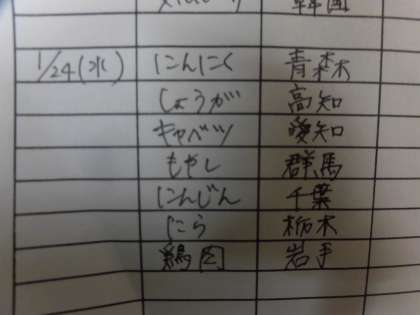 韓国
1/24(水) にんにく 青森
しょうが 高知
キャベツ 愛知
もやし 群馬
にんじん 千葉
にら 栃木
鶏肉 岩手